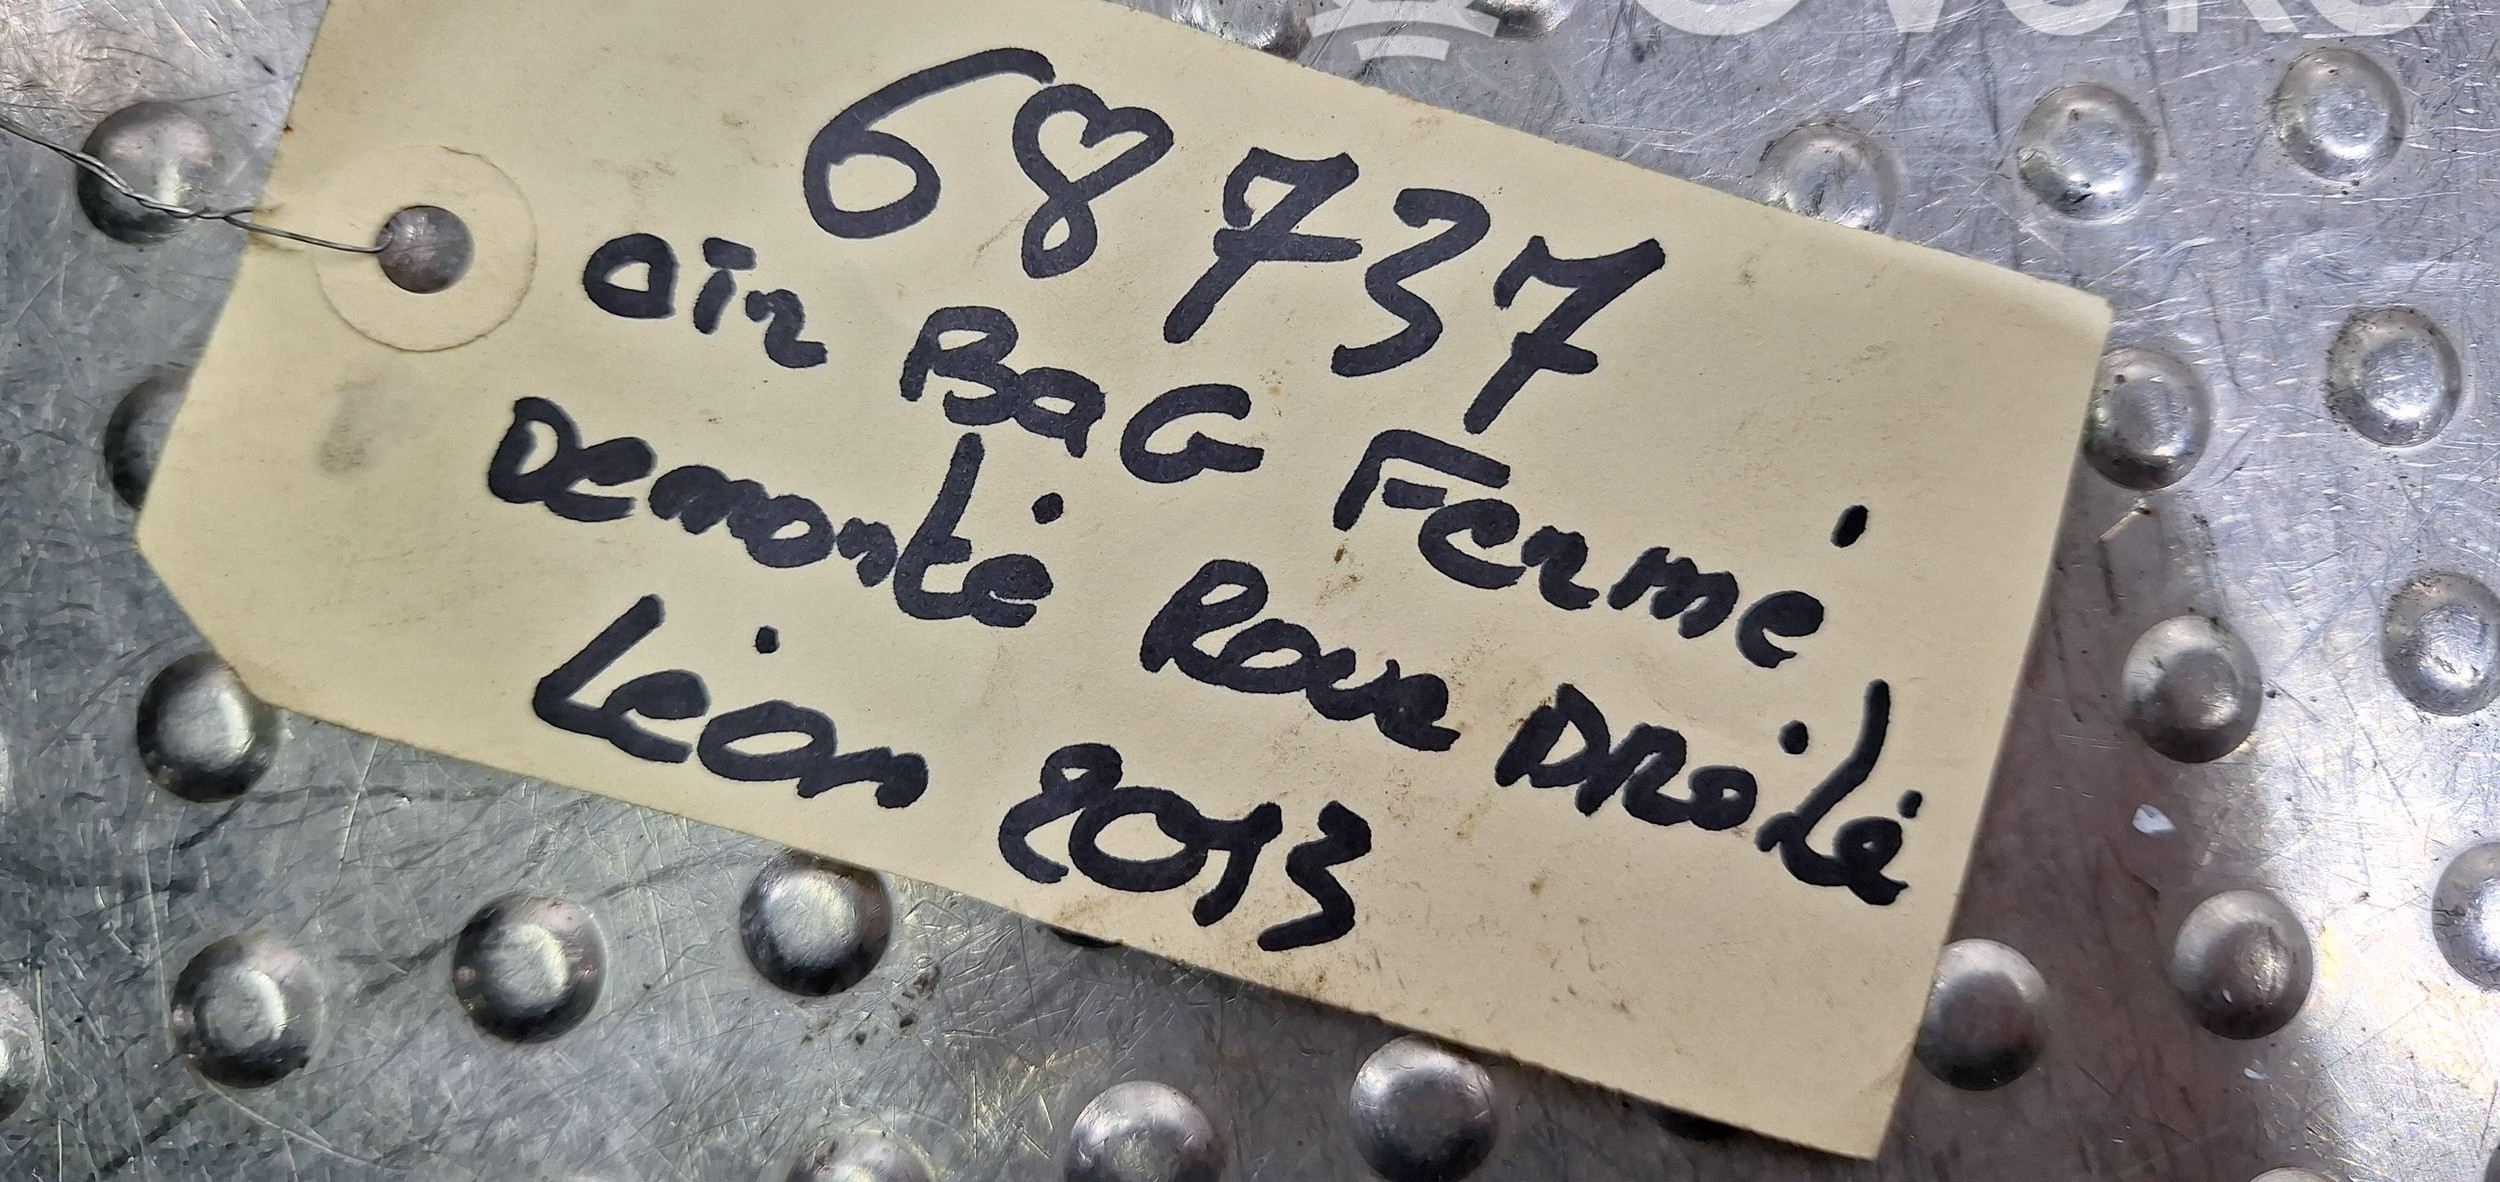 68737
air BaG Fermé
Demonté Roue DRoité
Léon 2013